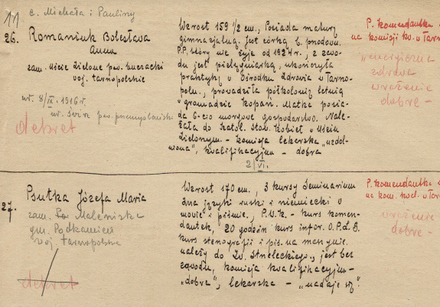 11
c. Michała i Pauliny
26. Romaniuk Bolesława
Anna
zam. Uście zielone pow. buczacki
woj. tarnopolskie
ur. 8/IX. 1916 r.
debiet
Wzrost 159 1/2 cm., Posiada maturę
gimnazjalną. Jest córką ś. przodow.
P.P., który nie żyje od 1927 r., z zawo-
du jest pielęgniarką, ukończyła
praktykę w Ośrodku Zdrowia w Tarno-
polu, prowadziła półkolonię letnią
w gromadzie Kopań. Matka posia-
da 6-cio morgowe gospodarstwo. Nale-
żała do Katol. Stow. Kobiet w Uściu
Zielonym. - Komisja lekarska "uzdol-
niona", kwalifikacyjna - dobra
2/VI.
P. komendantka
na komisji kw. w Tarno-
zdrowa
wrażenie
dobre -
27.
Psutka Józefa Maria
zam.
woj. tarnopolskie
Wzrost 170 cm., 3 kursy Seminarium
zna języki ruski i niemiecki w
mowie i piśmie, P.W.K. - kurs komen-
dantek, 20 godzin kurs infor. O.P.L.G.
kurs stenografii i pis. na maszynie,
należy do Zw. Strzeleckiego, jest bez
zawodu, komisja kwalifikacyjna -
"dobra", lekarska - "nadaje się"
P. komendantka
na kom. kwal. w Tarn.
wrażenie
dobre -